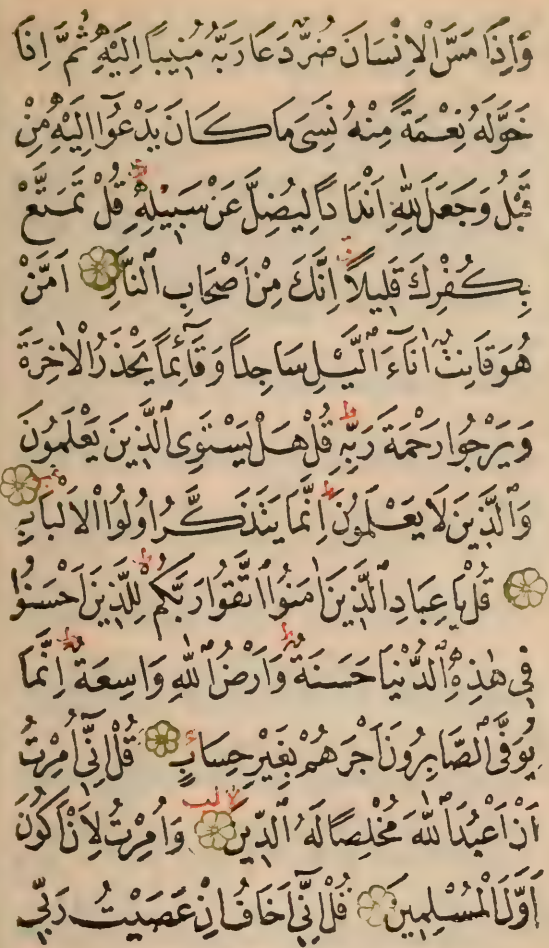 وَاِذَا مَسَّ الْاِنْسَانَ ضُرٌّ دَعَا رَبَّهُ مُنِيبًا اِلَيْهِ ثُمَّ اِذَا
خَوَّلَهُ نِعْمَةً مِنْهُ نَسِىَ مَا كَانَ يَدْعُوا اِلَيْهِ مِنْ
قَبْلُ وَجَعَلَ لِلّٰهِ اَنْدَادًا لِيُضِلَّ عَنْ سَبِيلِهِ قُلْ تَمَتَّعْ
بِكُفْرِكَ قَلِيلًا اِنَّكَ مِنْ اَصْحَابِ النَّارِ اَمَّنْ
هُوَ قَانِتٌ اٰنَاءَ الَّيْلِ سَاجِدًا وَقَائِمًا يَحْذَرُ الْاٰخِرَةَ
وَيَرْجُوا رَحْمَةَ رَبِّهِ قُلْ هَلْ يَسْتَوِى الَّذِينَ يَعْلَمُونَ
وَالَّذِينَ لَا يَعْلَمُونَ اِنَّمَا يَتَذَكَّرُ اُولُوا الْاَلْبَابِ
قُلْ يَا عِبَادِ الَّذِينَ اٰمَنُوا اتَّقُوا رَبَّكُمْ لِلَّذِينَ اَحْسَنُوا
فِى هٰذِهِ الدُّنْيَا حَسَنَةٌ وَاَرْضُ اللّٰهِ وَاسِعَةٌ اِنَّمَا
يُوَفَّى الصَّابِرُونَ اَجْرَهُمْ بِغَيْرِ حِسَابٍ قُلْ اِنِّى اُمِرْتُ
اَنْ اَعْبُدَ اللّٰهَ مُخْلِصًا لَهُ الدِّينَ وَاُمِرْتُ لِاَنْ اَكُونَ
اَوَّلَ الْمُسْلِمِينَ قُلْ اِنِّى اَخَافُ اِنْ عَصَيْتُ رَبِّى